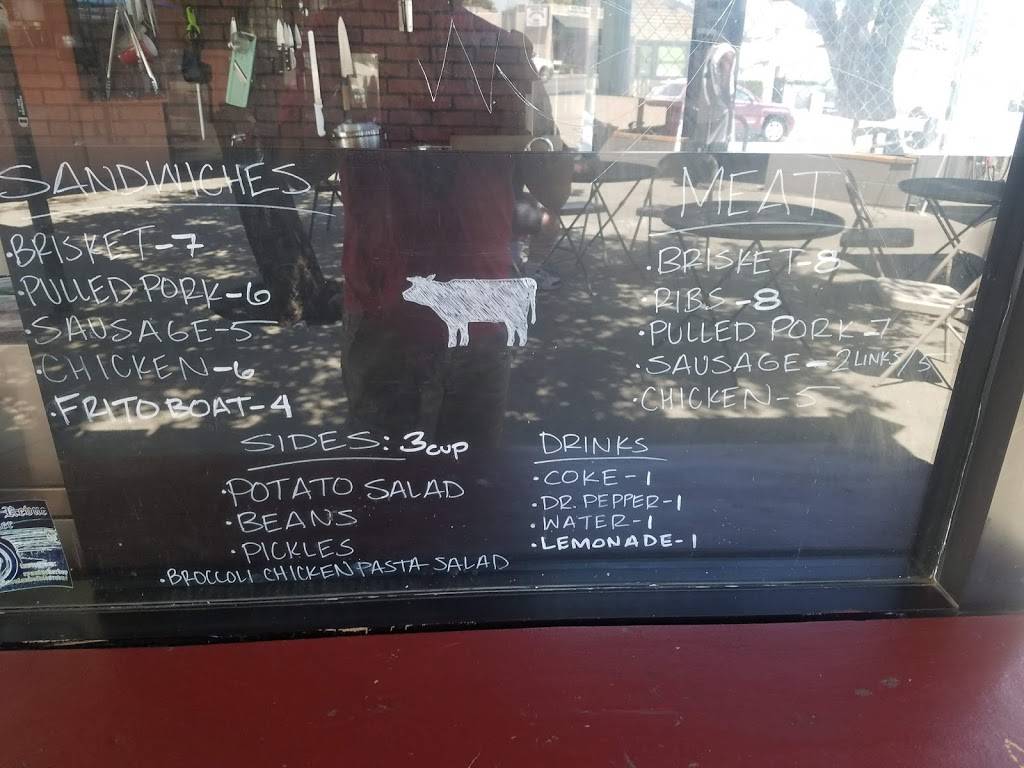 SANDWICHES
·BRISKET-7
·PULLED PORK-6
·SAUSAGE-5
·CHICKEN-6
·FRITO BOAT-4
MEAT
·BRISKET-8
·RIBS-8
·PULLED PORK-7
·SAUSAGE-2 LINKS/5
·CHICKEN-5
SIDES: 3cup
·POTATO SALAD
·BEANS
·PICKLES
·BROCCOLI CHICKEN PASTA SALAD
DRINKS
·COKE-1
·DR. PEPPER-1
·WATER-1
·LEMONADE-1